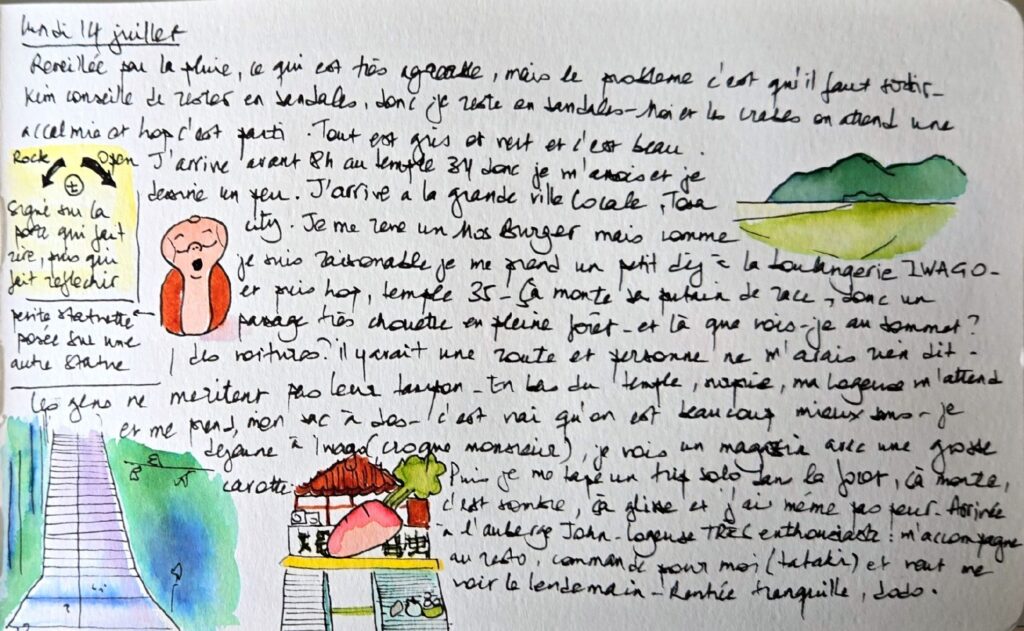 lundi 14 juillet
Reveillée par la pluie, ce qui est très agréable, mais le problème c'est qu'il faut sortir -
Kim conseille de rester en sandales, donc je reste en sandales - Moi et les crabes on attend une
accalmie et hop c'est parti. Tout est gris et vert et c'est beau.
J'arrive avant 8h au temple 34 donc je m'assois et je
dessine un peu. J'arrive a la grande ville locale, Tosa
city. Je me reve un Mos Burger mais comme
je suis raisonnable je me prend un petit dej à la boulangerie IWAGO -
et puis hop, temple 35 - Cà monte sa putain de race, donc un
passage très chouette en pleine forêt - et là que vois-je au sommet?
des voitures? il y avait une route et personne ne m'avais rien dit -
Les gens ne meritent pas leur tampon - En bas du temple, , ma logeuse m'attend
et me prend, mon sac à dos - c'est vrai qu'on est beaucoup mieux sans - je
dejeune à Iwago (croque monsieur), je vois un magasin avec une grosse
carotte.
Puis je me tape un trip solo dans la foret, çà monte,
c'est sombre, çà glisse et j'ai même pas peur. Arrivée
à l'auberge John - logeuse TRES enthousiaste : m'accompagne
au resto, commande pour moi (tataki) et veut me
voir le lendemain - Rentrée tranquille, dodo.
Rock Open
±
Signe sur la
porte qui fait
rire, puis qui
fait reflechir
petite statuette
posée sur une
autre statue